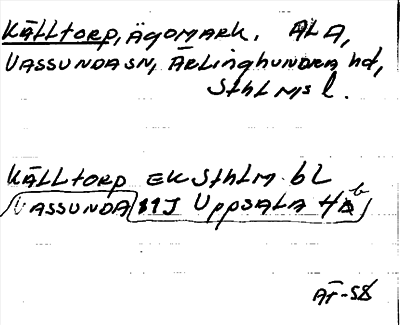 Källtorp, ägomark. ALA,
Vassunda sn, Ärlinghundra hd,
Sthlms l.
Källtorp Ek Sthlm bl
Vassunda 11J Uppsala Hb
ÄF-58